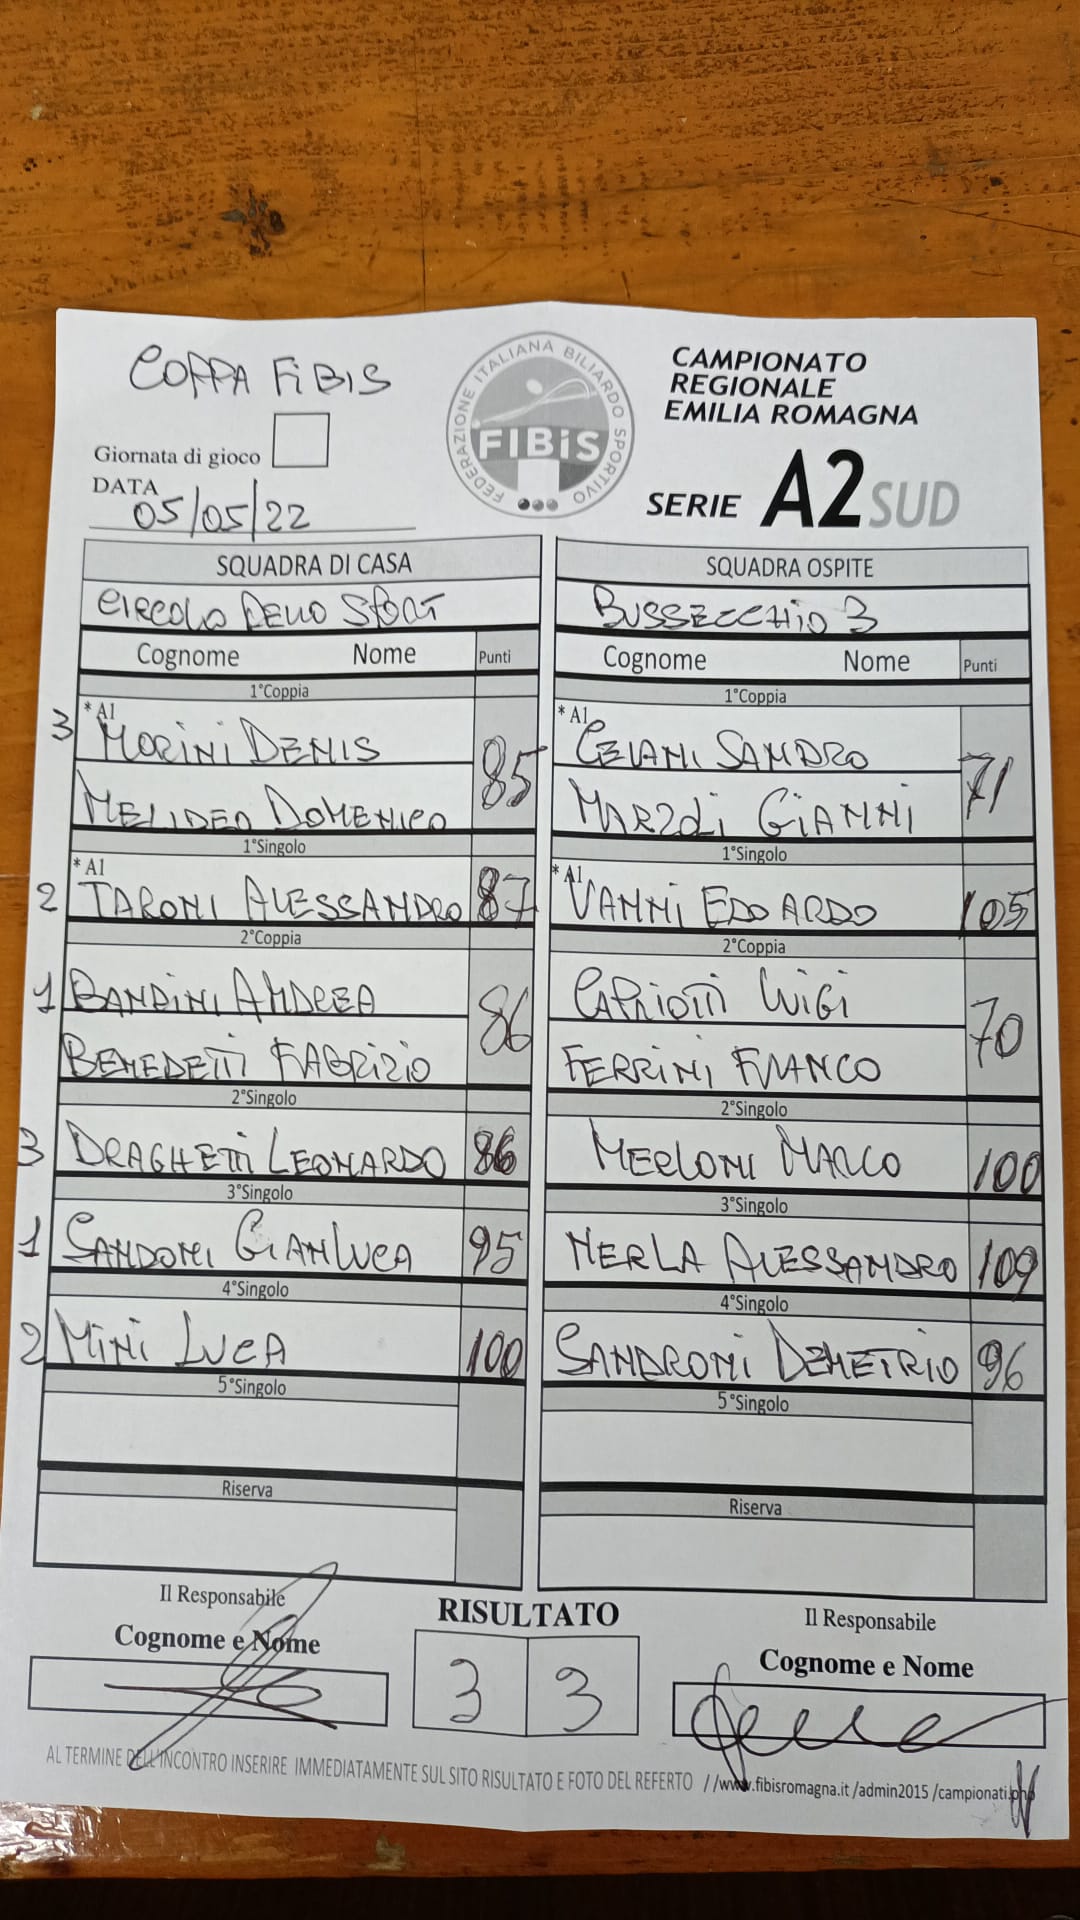 COPPA FIBIS
FEDERAZIONE ITALIANA BILIARDO SPORTIVO
FIBiS
CAMPIONATO
REGIONALE
EMILIA ROMAGNA
SERIE A2 SUD
Giornata di gioco
DATA 05/05/22
SQUADRA DI CASA
CIRCOLO DELLO SPORT
Cognome Nome Punti
1°Coppia
3 * A1 MORINI DENIS 85
MELIDEO DOMENICO
1°Singolo
2 * A1 TARONI ALESSANDRO 87
2°Coppia
1 BANDINI ANDREA 86
BENEDETTI FABRIZIO
2°Singolo
3 DRAGHETTI LEONARDO 86
3°Singolo
1 SANDONI GIANLUCA 95
4°Singolo
2 MINI LUCA 100
5°Singolo
Riserva
SQUADRA OSPITE
BUSSECCHIO 3
Cognome Nome Punti
1°Coppia
* A1 CELANI SANDRO 71
MARZOLI GIANNI
1°Singolo
* A1 VANNI EDOARDO 105
2°Coppia
CAPRIOTTI LUIGI 70
FERRINI FRANCO
2°Singolo
MERLONI MARCO 100
3°Singolo
MERLA ALESSANDRO 109
4°Singolo
SANDRONI DEMETRIO 96
5°Singolo
Riserva
Il Responsabile
Cognome e Nome
RISULTATO
3 3
Il Responsabile
Cognome e Nome
AL TERMINE DELL'INCONTRO INSERIRE IMMEDIATAMENTE SUL SITO RISULTATO E FOTO DEL REFERTO //www.fibisromagna.it /admin2015 /campionati.php